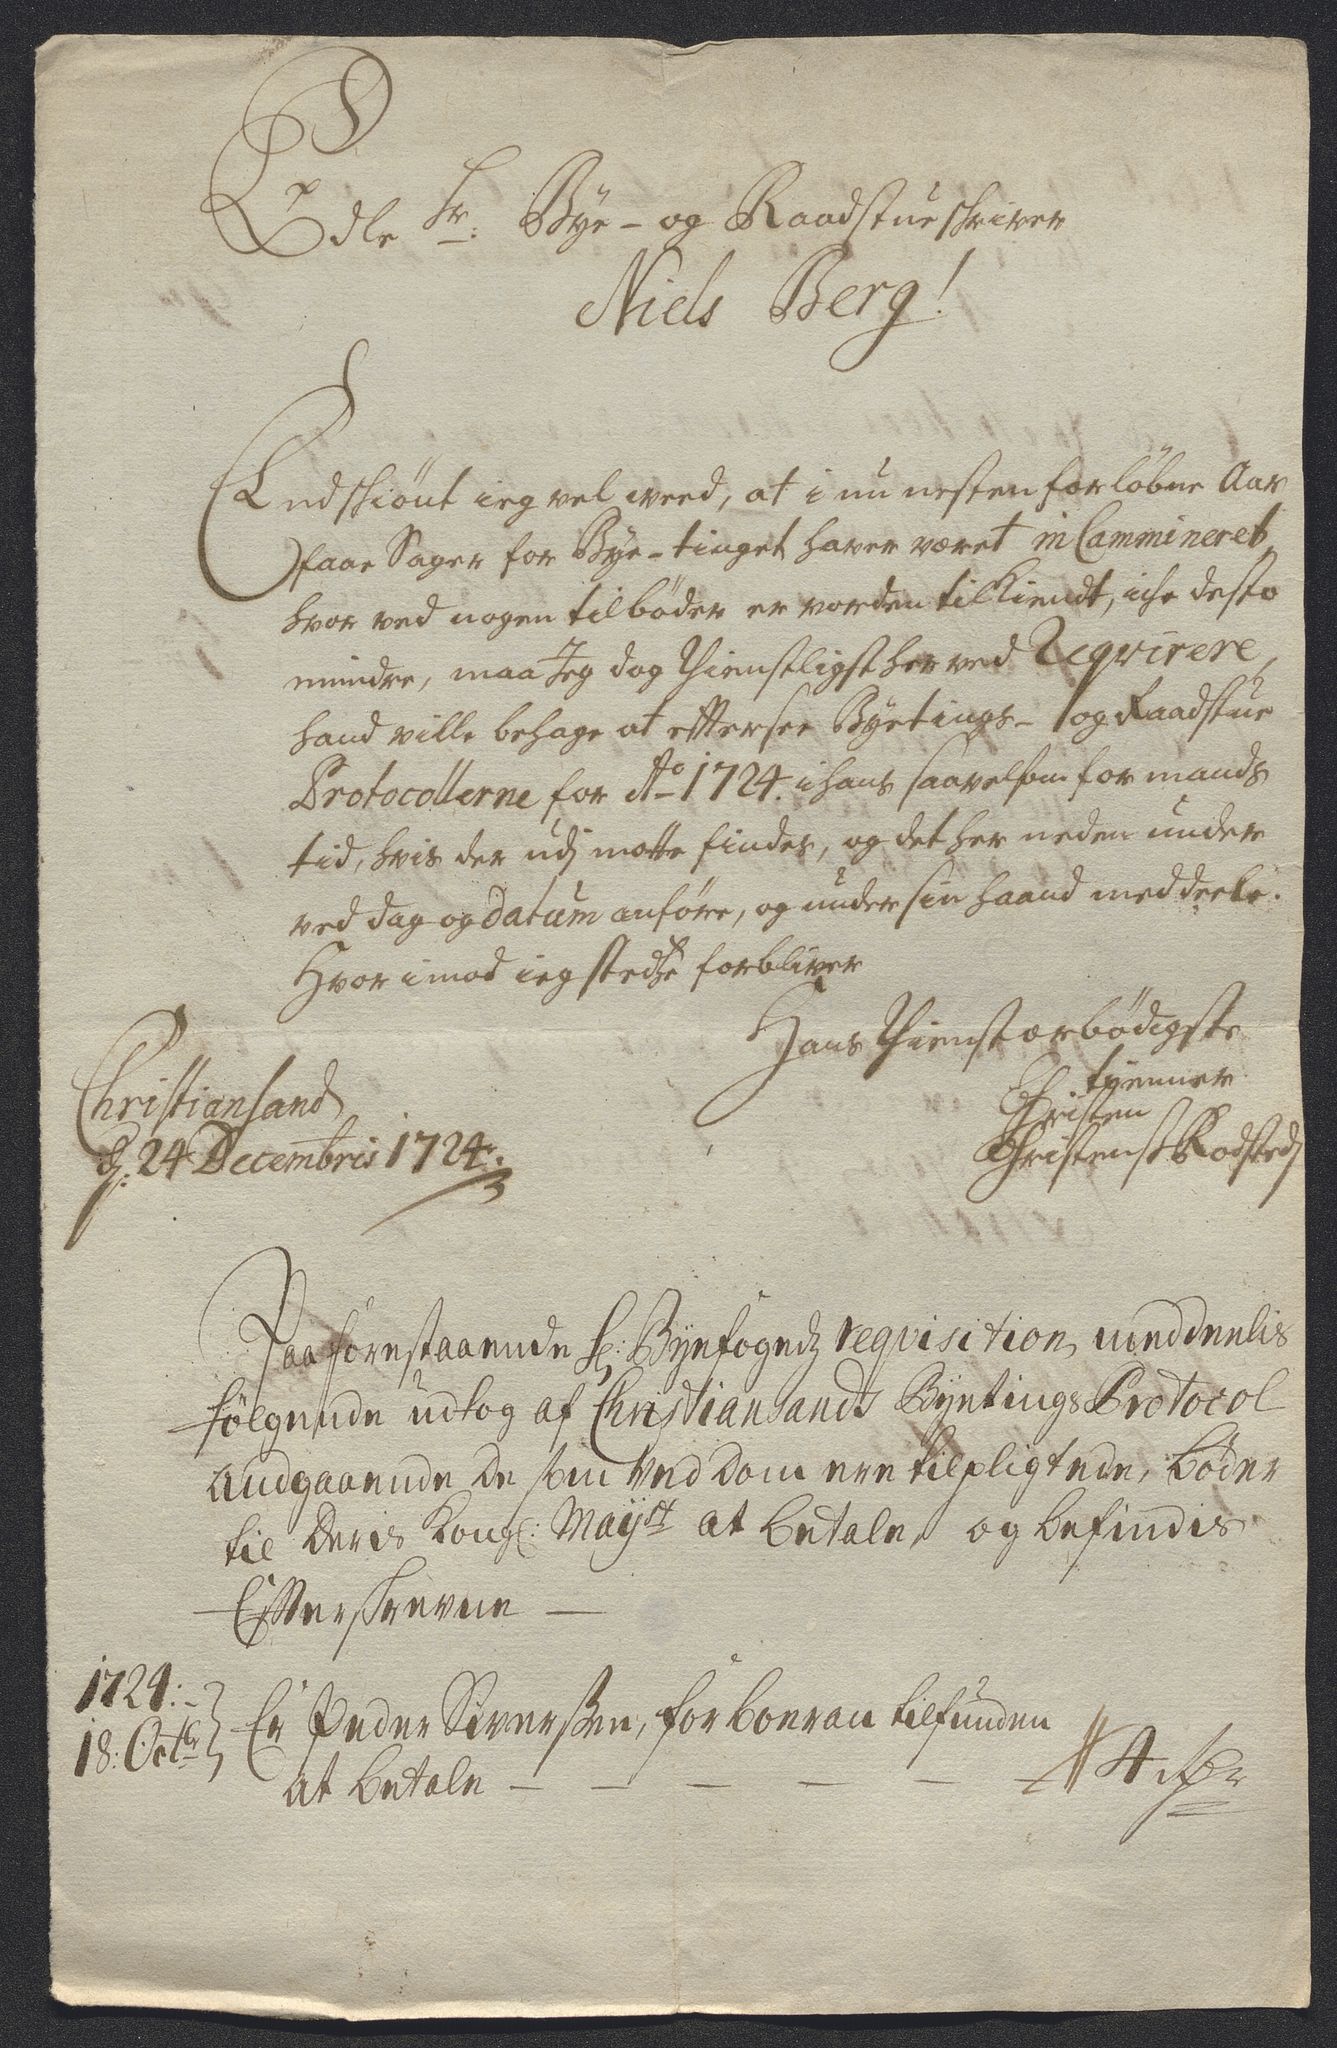 Edle Hr: Bye- og Raadstueschriver
Niels Berg!
Endschiönt ieg vel weed, at i nu nesten forløbne Aar
faae Sager for Bye-tinget haver været in Cammineret,
hvor ved nogen til bøder er vorden tilkiendt, iche desto
mindre, maa Jeg dog tienstligst her ved Reqvirere,
hand ville behage at effterser Byetings- og Raadstue
Protocollerne for Ao 1724. i hans saavelsom formands
tid, hvis der udj motte findes, og det her neden under
ved dag og datum anføre, og under sin haand meddeele.
Hvorimod ieg stedze forbliver
Hans tienstærbødigste
tienner
Christen
Christens Rodsted
Christiansand
d: 24 Decembris 1724.
Paa forestaaende Hr: Byefogedz reqvisition, meddeelis
følgende udtog af Christiansands Byetings Protocol
andgaaende de som ved dom ere tilpligtede, bøder
til deris Kongl: Mayst at betale, og befindis
Effterskrevne —
1724:-
18: Octbr Er Peder Siverßen, for boeran tilfunden
at betale — — — — — — 4